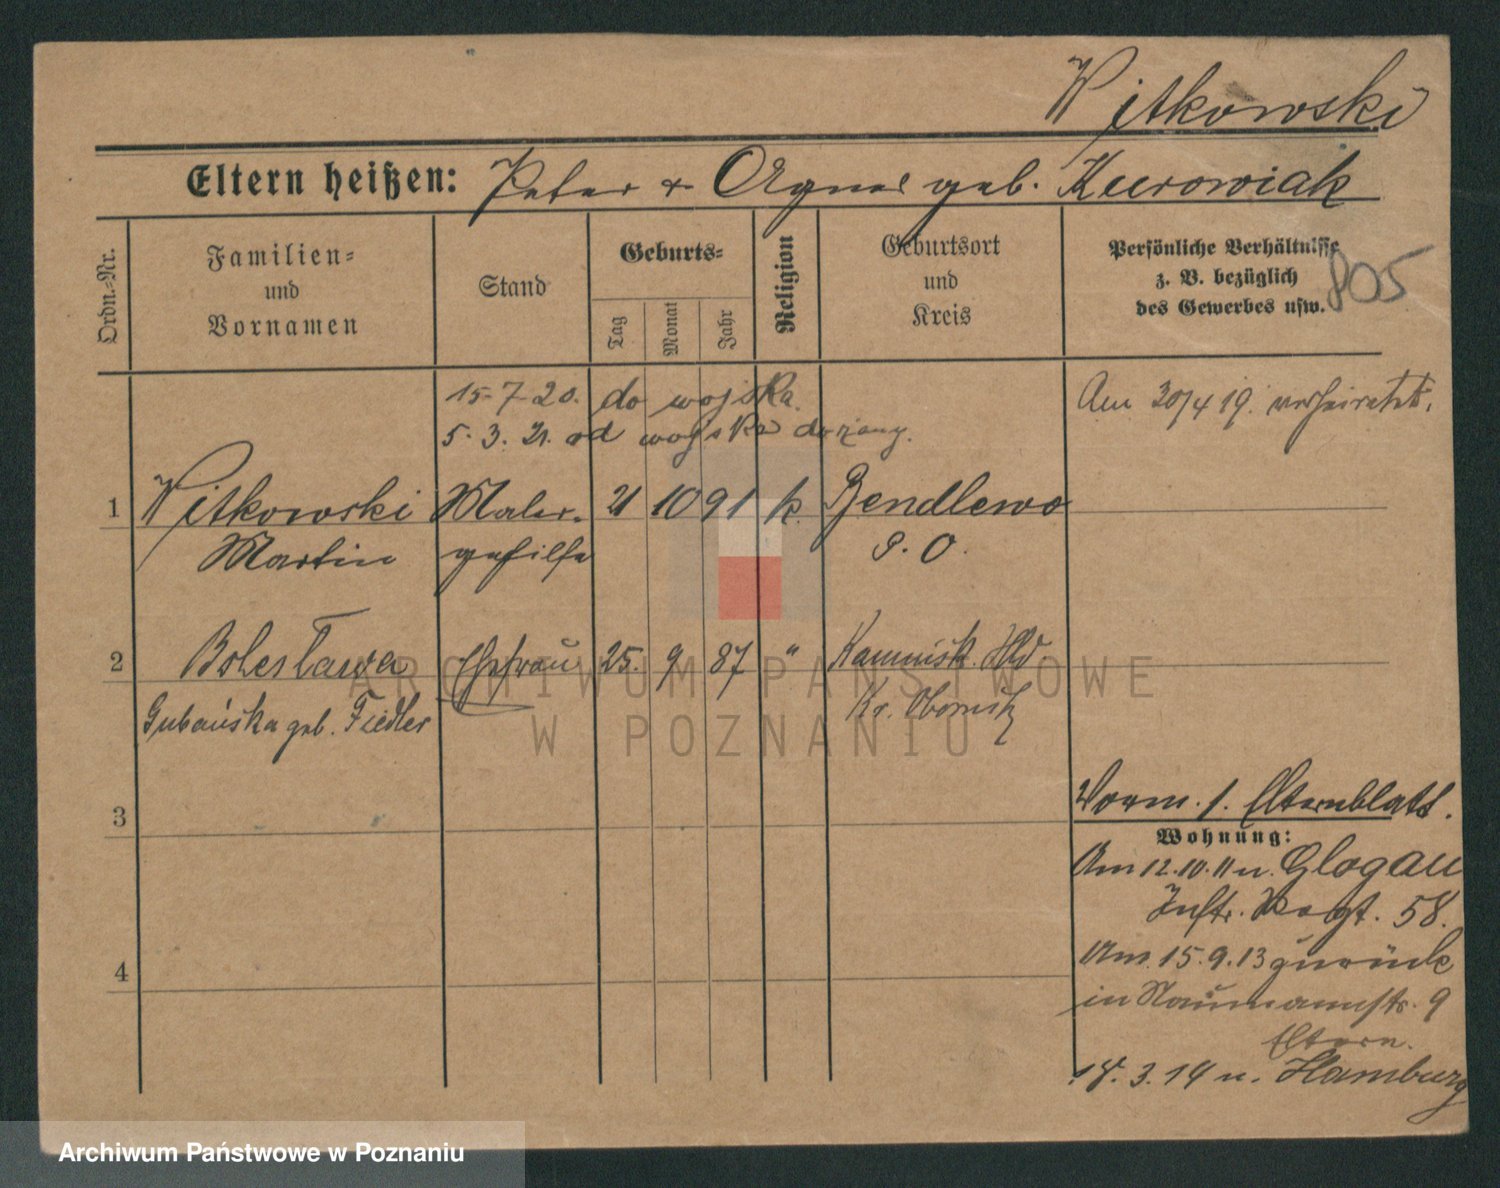 Witkowski
Eltern heißen: Peter & Agnes geb. Kurowiak
Ordn.-Nr.
Familien-
und
Vornamen
Stand
Geburts-
Tag
Monat
Jahr
Religion
Geburtsort
und
Kreis
Persönliche Verhältnisse
z. B. bezüglich
des Gewerbes usw.
805
15-7-20. do wojska.
5.3.21. od wojska
Am 30/4 19. verheiratet.
1 Witkowski Maler- 21 10 91 k. Bendlewo
Martin gehilfe P. O.
2 Bolesława Ehefrau 25. 9 87 " Kamińsk. Hld
Gubańska geb. Fiedler Kr. Obornik
3
4
Vorm. s. Elternblatt.
Wohnung:
Am 12.10.11 n. Glogau
Inftr. Regt. 58.
Am 15.9.13 zurück
in Naumannstr. 9
Eltern.
18.3.14 n. Hamburg
ARCHIWUM PAŃSTWOWE
W POZNANIU
Archiwum Państwowe w Poznaniu